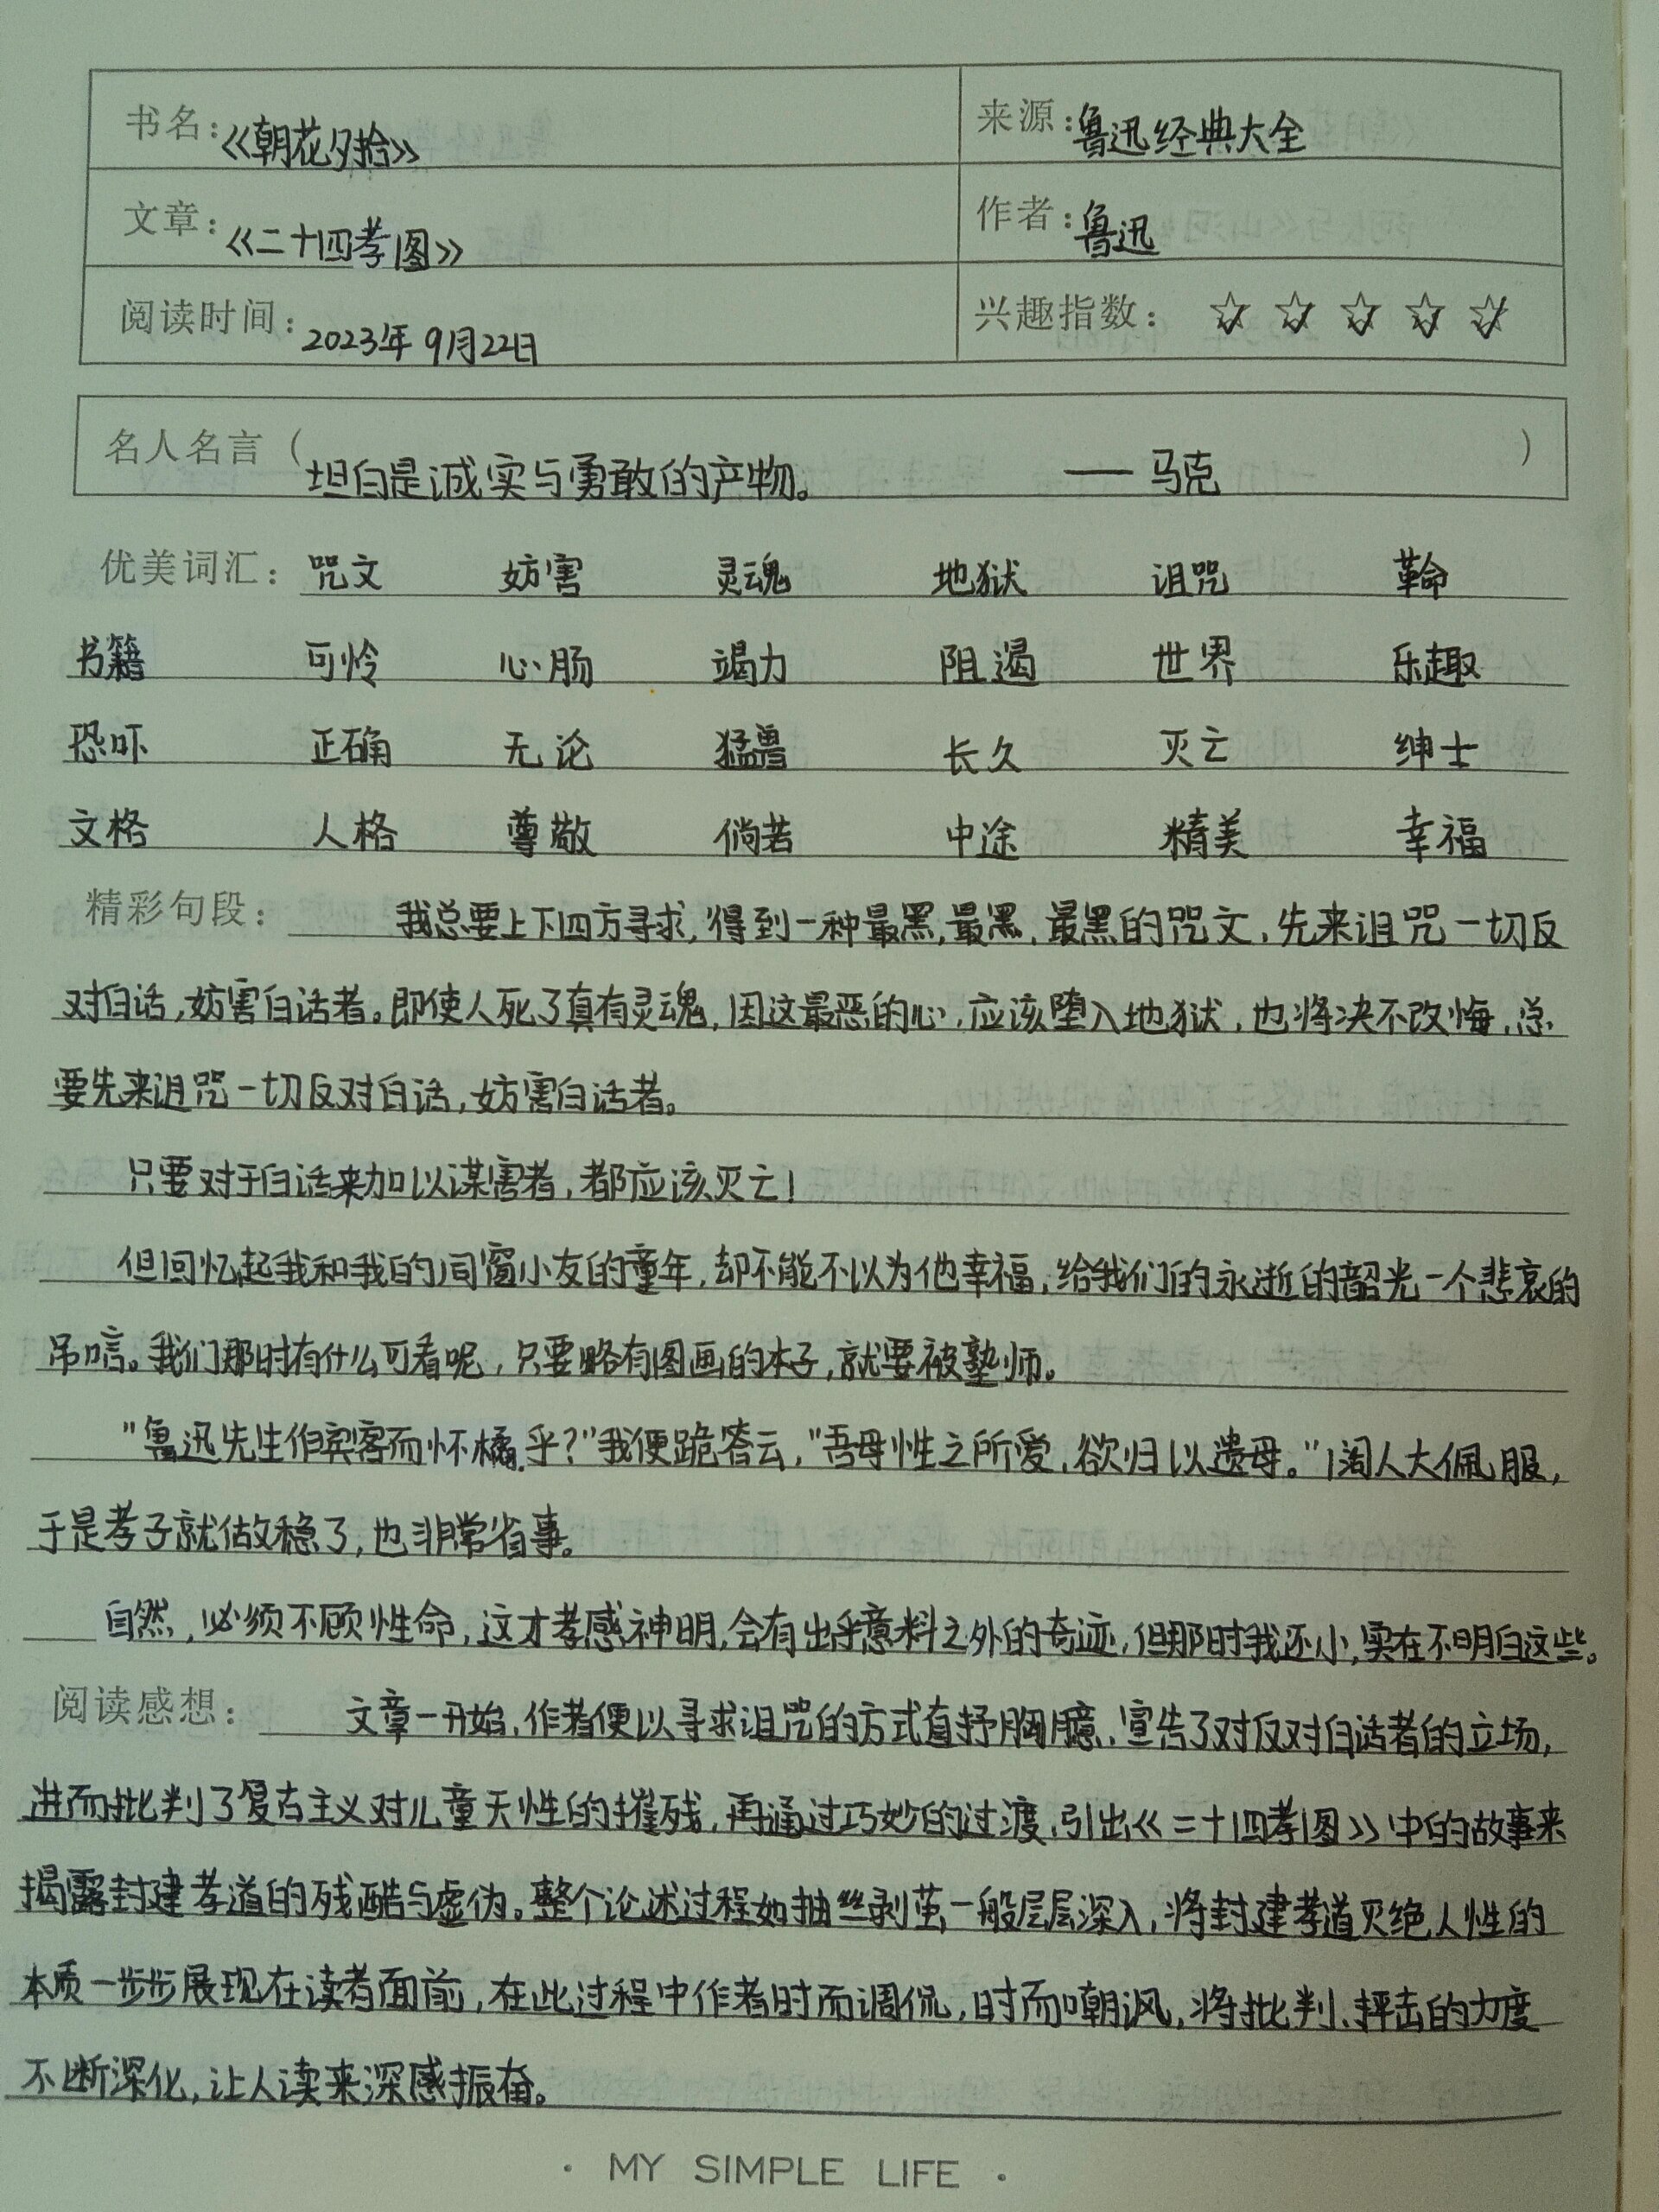 书名：《朝花夕拾》 来源：鲁迅经典大全
文章：《二十四孝图》 作者：鲁迅
阅读时间：2023年9月22日 兴趣指数：☆ ☆ ☆ ☆ ☆
名人名言（坦白是诚实与勇敢的产物。 —— 马克）
优美词汇：咒文 妨害 灵魂 地狱 诅咒 革命
书籍 可怜 心肠 竭力 阻遏 世界 乐趣
恐吓 正确 无论 猛兽 长久 灭亡 绅士
文格 人格 尊敬 倘若 中途 精美 幸福
精彩句段：我总要上下四方寻求，得到一种最黑，最黑，最黑的咒文，先来诅咒一切反
对白话，妨害白话者。即使人死了真有灵魂，因这最恶的心，应该堕入地狱，也将决不改悔，总
要先来诅咒一切反对白话，妨害白话者。
只要对于白话来加以谋害者，都应该灭亡！
但回忆起我和我的同窗小友的童年，却不能不以为他幸福，给我们的永逝的韶光一个悲哀的
吊唁。我们那时有什么可看呢，只要略有图画的本子，就要被塾师。
"鲁迅先生作宾客而怀橘乎？"我便跪答云，"吾母性之所爱，欲归以遗母。"阔人大佩服，
于是孝子就做稳了，也非常省事。
自然，必须不顾性命，这才孝感神明，会有出乎意料之外的奇迹，但那时我还小，实在不明白这些。
阅读感想：文章一开始，作者便以寻求诅咒的方式直抒胸臆，宣告了对反对白话者的立场，
进而批判了复古主义对儿童天性的摧残，再通过巧妙的过渡，引出《二十四孝图》中的故事来
揭露封建孝道的残酷与虚伪。整个论述过程如抽丝剥茧一般层层深入，将封建孝道灭绝人性的
本质一步步展现在读者面前，在此过程中作者时而调侃，时而嘲讽，将批判、抨击的力度
不断深化，让人读来深感振奋。
· MY SIMPLE LIFE ·